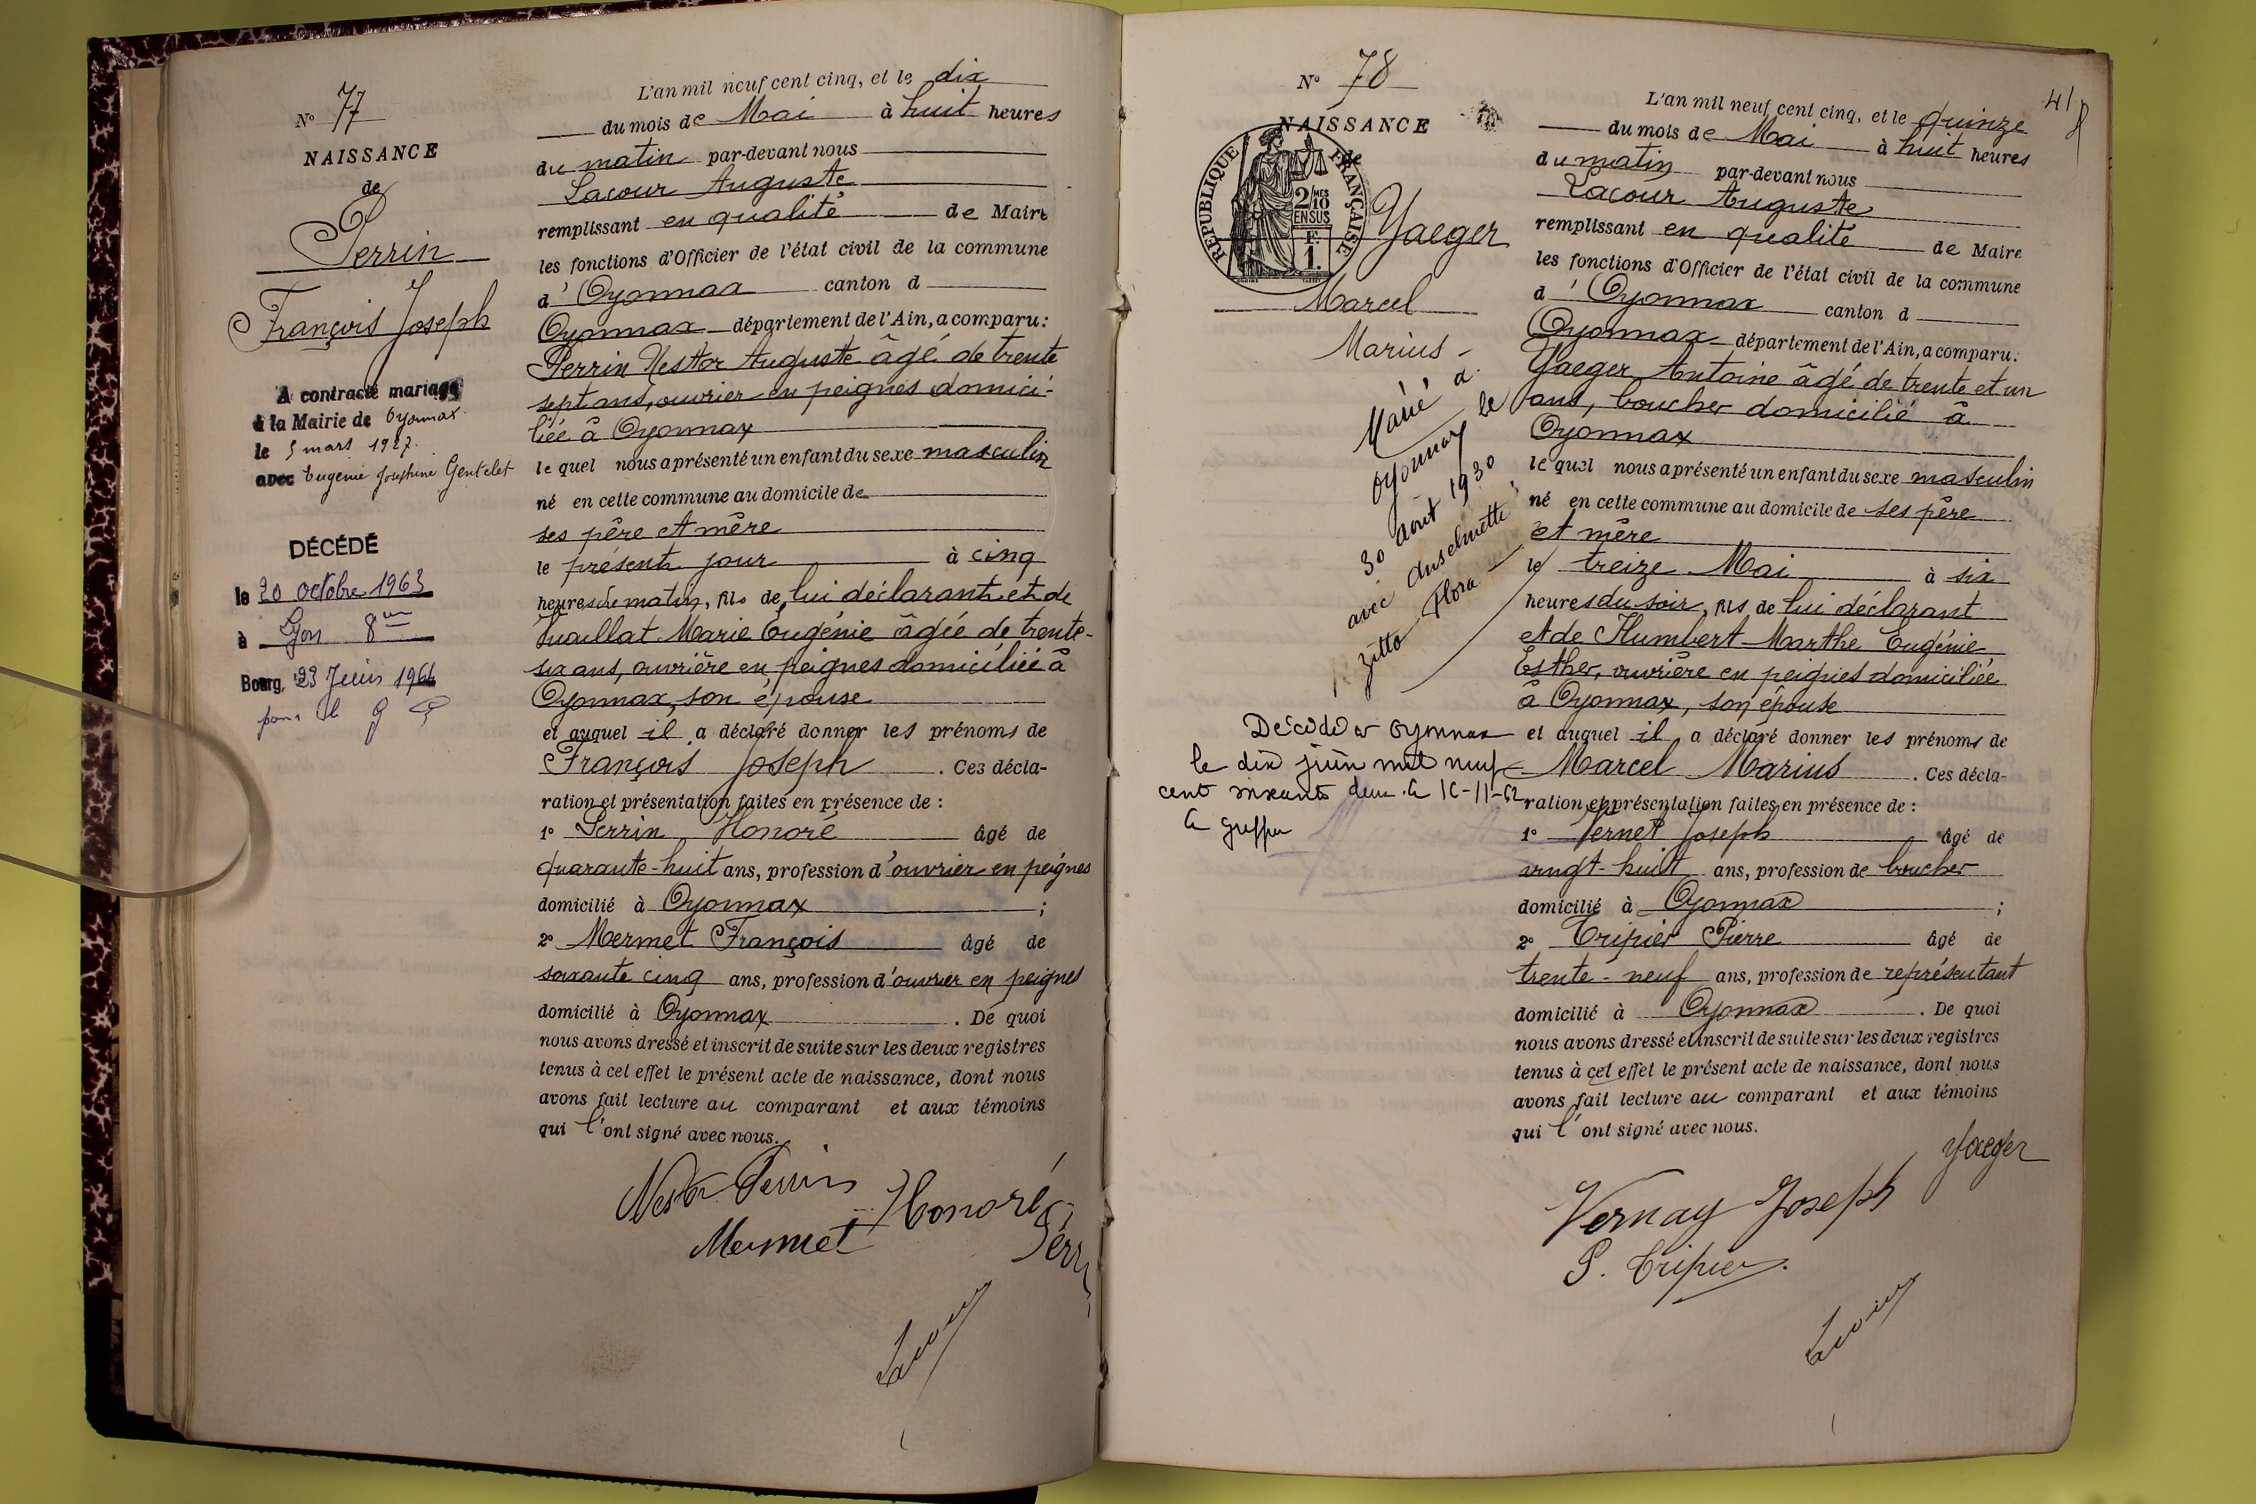 N° 77
NAISSANCE
de
Perrin
François Joseph
A contracté mariage
à la Mairie de Oyonnax
le 5 mars 1927.
avec Eugénie Joséphine Gentelet
DÉCÉDÉ
le 20 octobre 1963
à Lyon 8
Bourg, 23 Juin 1964
L'an mil neuf cent cinq, et le dix
du mois de Mai à huit heures
du matin par-devant nous
Lacour Auguste
remplissant en qualité de Maire
les fonctions d'Officier de l'état civil de la commune
d'Oyonnax canton d
Oyonnax département de l'Ain, a comparu:
Perrin Nestor Auguste âgé de trente
sept ans, ouvrier en peignes domici-
liée à Oyonnax
le quel nous a présenté un enfant du sexe masculin
né en cette commune au domicile de
ses père et mère
le présent jour à cinq
heures du matin, fils de lui déclarant et de
Marie Eugénie âgée de trente-
six ans, ouvrière en peignes domiciliée à
Oyonnax, son épouse
et auquel il a déclaré donner les prénoms de
François Joseph. Ces décla-
ration et présentation faites en présence de :
1° Perrin Honoré âgé de
quarante-huit ans, profession d'ouvrier en peignes
domicilié à Oyonnax ;
2° Mermet François âgé de
soixante cinq ans, profession d'ouvrier en peignes
domicilié à Oyonnax. De quoi
nous avons dressé et inscrit de suite sur les deux registres
tenus à cet effet le présent acte de naissance, dont nous
avons fait lecture au comparant et aux témoins
qui l'ont signé avec nous.
Nestor Perrin
Honoré
Mermet
Perrin
Lacour
41
N° 78
NAISSANCE
de
RÉPUBLIQUE FRANÇAISE
2/10 MES
EN SUS
F.
1.
Yaeger
Marcel
Marius -
Marié à
Oyonnax le
30 août 1930
avec Anselmetti
Flora
Décédé à Oyonnax
le dix juin mil neuf
cent soixante deux. le 16-11-62
Le greffier
L'an mil neuf cent cinq, et le quinze
du mois de Mai à huit heures
du matin par-devant nous
Lacour Auguste
remplissant en qualité de Maire
les fonctions d'Officier de l'état civil de la commune
d'Oyonnax canton d
Oyonnax département de l'Ain, a comparu:
Yaeger Antoine âgé de trente et un
ans, boucher domicilié à
Oyonnax
le quel nous a présenté un enfant du sexe masculin
né en cette commune au domicile de ses père
et mère
le treize Mai à six
heures du soir, fils de lui déclarant
et de Humbert Marthe Eugénie
Esther, ouvrière en peignes domiciliée
à Oyonnax, son épouse
et auquel il a déclaré donner les prénoms de
Marcel Marius. Ces décla-
ration et présentation faites en présence de :
1° Joseph âgé de
vingt-huit ans, profession de boucher
domicilié à Oyonnax ;
2° Tripier Pierre âgé de
trente-neuf ans, profession de représentant
domicilié à Oyonnax. De quoi
nous avons dressé et inscrit de suite sur les deux registres
tenus à cet effet le présent acte de naissance, dont nous
avons fait lecture au comparant et aux témoins
qui l'ont signé avec nous.
Yaeger
Vernay Joseph
P. Tripier
Lacour